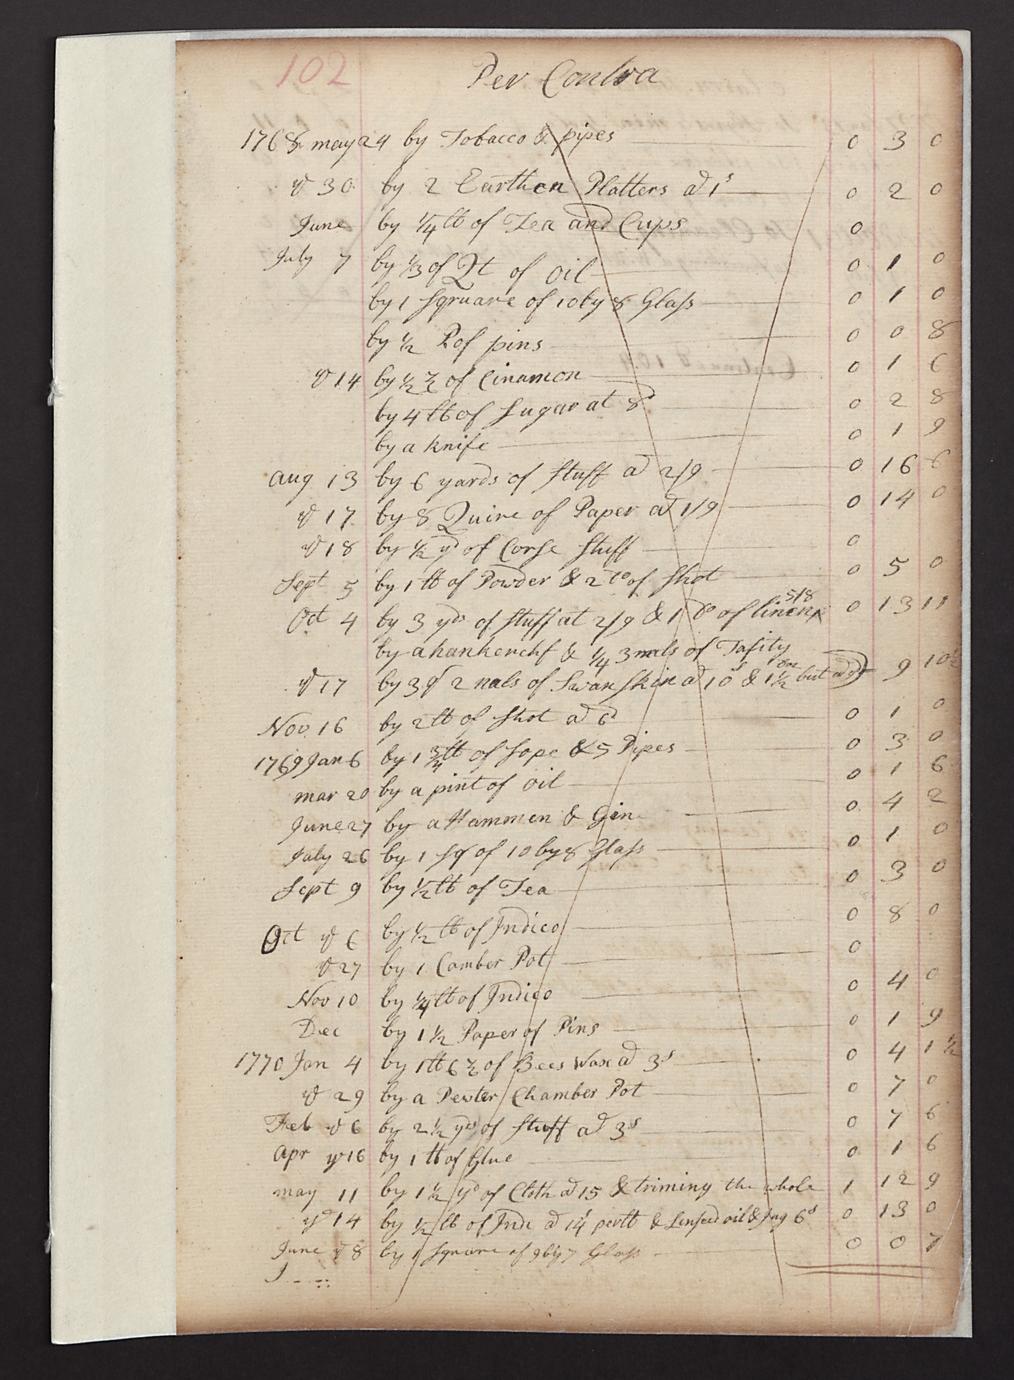 102
Per Contra
1768 may 24 by Tobacco & pipes 0 3 0
ye 30 by 2 Earthen Platters at 1s 0 2 0
June by 1/4 lb of Tea and Cups 0
July 7 by 1/3 of Qt of oil 0 1 0
by 1 Sqruare of 10 by 8 Glass 0 1 0
by 1/2 P of pins 0 0 8
ye 14 by 1/2 ℥ of Cinamon 0 1 6
by 4 lb of Sugar at 8d 0 2 8
by a knife 0 1 9
aug 13 by 6 yards of Stuff at 2/9 0 16 6
ye 17 by 8 Quire of Paper at 1/9 0 14 0
ye 18 by 1/2 yd of Corse Stuff 0
Sept 5 by 1 lb of Powder & 2 to of Shot 0 5 0
5/8
Oct 4 by 3 yds of Stuff at 2/9 & 1 Do of linen 0 13 11
by a hankerchf & 1/4 3 nals of Tafity
ye 17 by 3 qr 2 nals of Swan Skin at 10s & 1 1/2 but 9 10 1/2
Nov 16 by 2 lb of Shot at 6d 0 1 0
1769 Jan 6 by 1 3/4 lb of Sope & 5 Pipes 0 3 0
mar 20 by a pint of oil 0 1 6
June 27 by a Hammen & Gin 0 4 2
July 26 by 1 Sqr of 10 by 8 Glass 0 1 0
Sept 9 by 1/2 lb of Tea 0 3 0
Oct ye 6 by 1/2 lb of Indico 0 8 0
ye 27 by 1 Camber Pot 0
Nov 10 by 1/4 lb of Indico 0 4 0
Dec by 1 1/2 Paper of Pins 0 1 9
1770 Jan 4 by 1 lb 6 ℥ of Bees Wax at 3s 0 4 1 1/2
ye 29 by a Pewter Chamber Pot 0 7 0
Feb ye 6 by 2 1/2 yds of Stuff at 3s 0 7 6
Apr ye 16 by 1 lb of Glue 0 1 6
may 11 by 1 1/2 yd of Cloth at 15 & triming the whole 1 12 9
ye 14 by 1/2 lb of Inde at 14s per lb & Linseed oil & Jug 6s 0 13 0
June ye 8 by 1 Square of 9 by 7 Glass 0 0 7